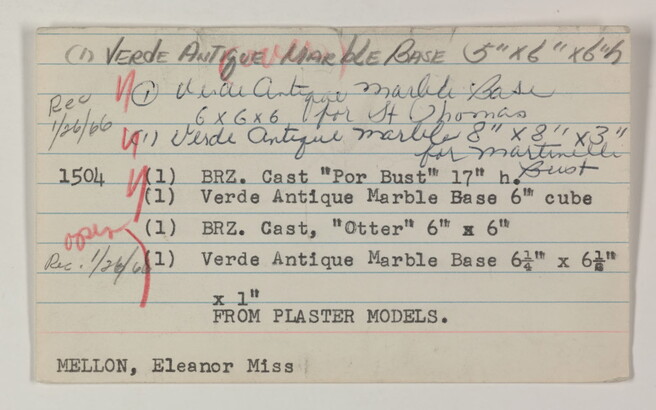 (1) VERDE ANTIQUE MARBLE BASE (5" x 6" x 6"h
Rec (1) Verde Antique Marble Base
1/26/66 6 x 6 x 6 for St Thomas
(1) Verde Antique Marble 8" x 8" x 3"
for Martinelli
Bust
1504 (1) BRZ. Cast "Por Bust" 17" h.
(1) Verde Antique Marble Base 6" cube
open (1) BRZ. Cast, "Otter" 6" x 6"
Rec. 1/26/66 (1) Verde Antique Marble Base 6¼" x 6½"
x 1"
FROM PLASTER MODELS.
MELLON, Eleanor Miss